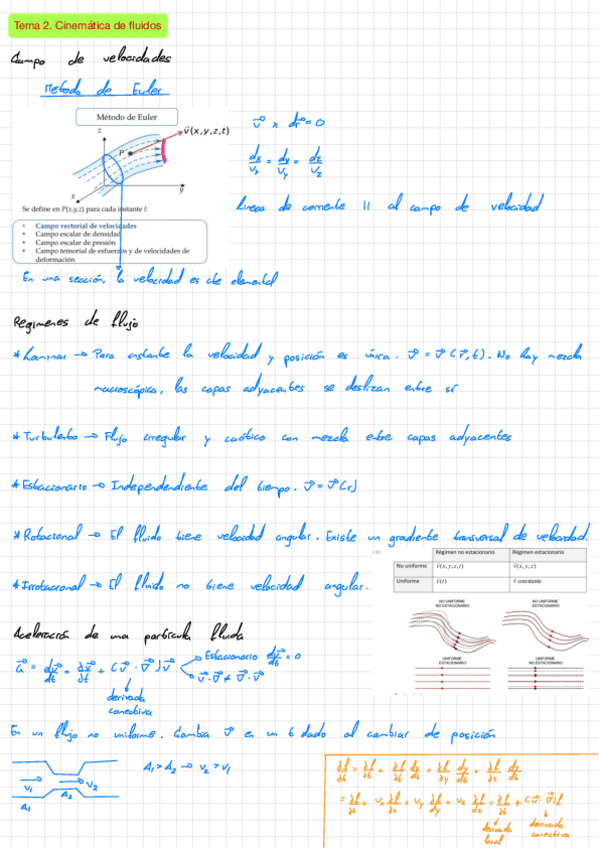 Tema 2. Cinemática de fluidos
Campo de velocidades
Método de Euler
Método de Euler
z
v⃗(x,y,z,t)
P
x
y
Se define en P(x,y,z) para cada instante t:
• Campo vectorial de velocidades
• Campo escalar de densidad
• Campo escalar de presión
• Campo tensorial de esfuerzos y de velocidades de deformación
v⃗ x dr⃗ = 0
dx/Vx = dy/Vy = dz/Vz
Lineas de corriente || al campo de velocidad
En una sección, la velocidad es cte elemental
Regimenes de flujo
* Laminar → Para instante la velocidad y posición es única. v⃗ = v⃗(r⃗,t). No hay mezcla
macroscópica, las capas adyacentes se deslizan entre sí
* Turbulento → Flujo irregular y caótico con mezcla entre capas adyacentes
* Estacionario → Independiente del tiempo. v⃗ = v⃗(r)
* Rotacional → El fluido tiene velocidad angular. Existe un gradiente transversal de velocidad.
* Irrotacional → El fluido no tiene velocidad angular.
Régimen no estacionario Régimen estacionario
No uniforme v⃗(x,y,z,t) v⃗(x,y,z)
Uniforme v⃗(t) v⃗ constante
NO UNIFORME NO ESTACIONARIO
NO UNIFORME ESTACIONARIO
UNIFORME ESTACIONARIO
UNIFORME NO ESTACIONARIO
Aceleración de una partícula fluida
a⃗ = dv⃗/dt = ∂v⃗/∂t + (v⃗·∇⃗)v⃗
Estacionario dv⃗/dt = 0
v⃗·∇⃗ ≠ ∇⃗·v⃗
derivada
conectiva
En un flujo no uniforme. Cambia v⃗ en un t dado al cambiar de posición
V1 V2
A1 A2
A1 > A2 → v2 > v1
∂f/∂t = ∂f/∂t + ∂f/∂x dx/dt + ∂f/∂y dy/dt + ∂f/∂z dz/dt
= ∂f/∂t + vx ∂f/∂x + vy ∂f/∂y + vz ∂f/∂z = ∂f/∂t + (v⃗·∇⃗)f
derivada local
derivada conectiva